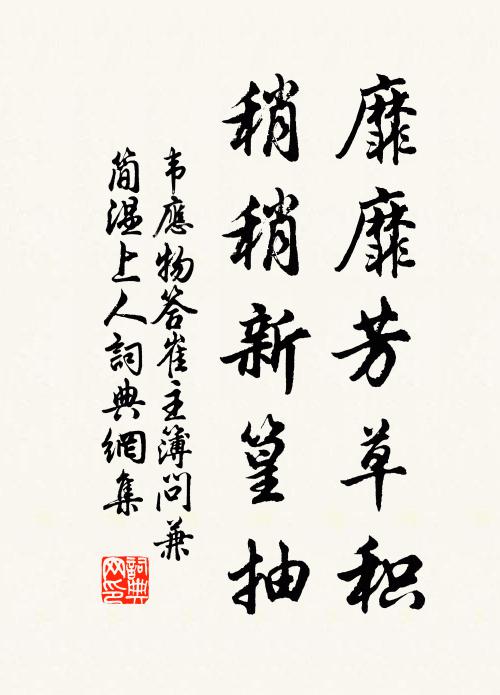 靡靡芳草积
稍稍新篁抽
韦應物答崔主簿问兼
简温上人詞典網集
詞典网印